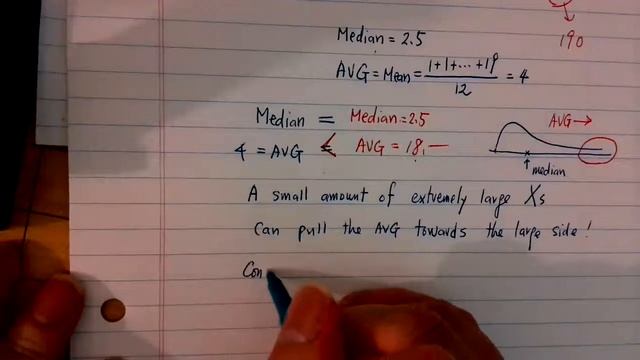 190
Median = 2.5
AVG = Mean = 1+1+...+19 / 12 = 4
Median = Median = 2.5
4 = AVG < AVG = 18.—
AVG →
median
A small amount of extremely large Xs
Can pull the AVG towards the large side!
Con